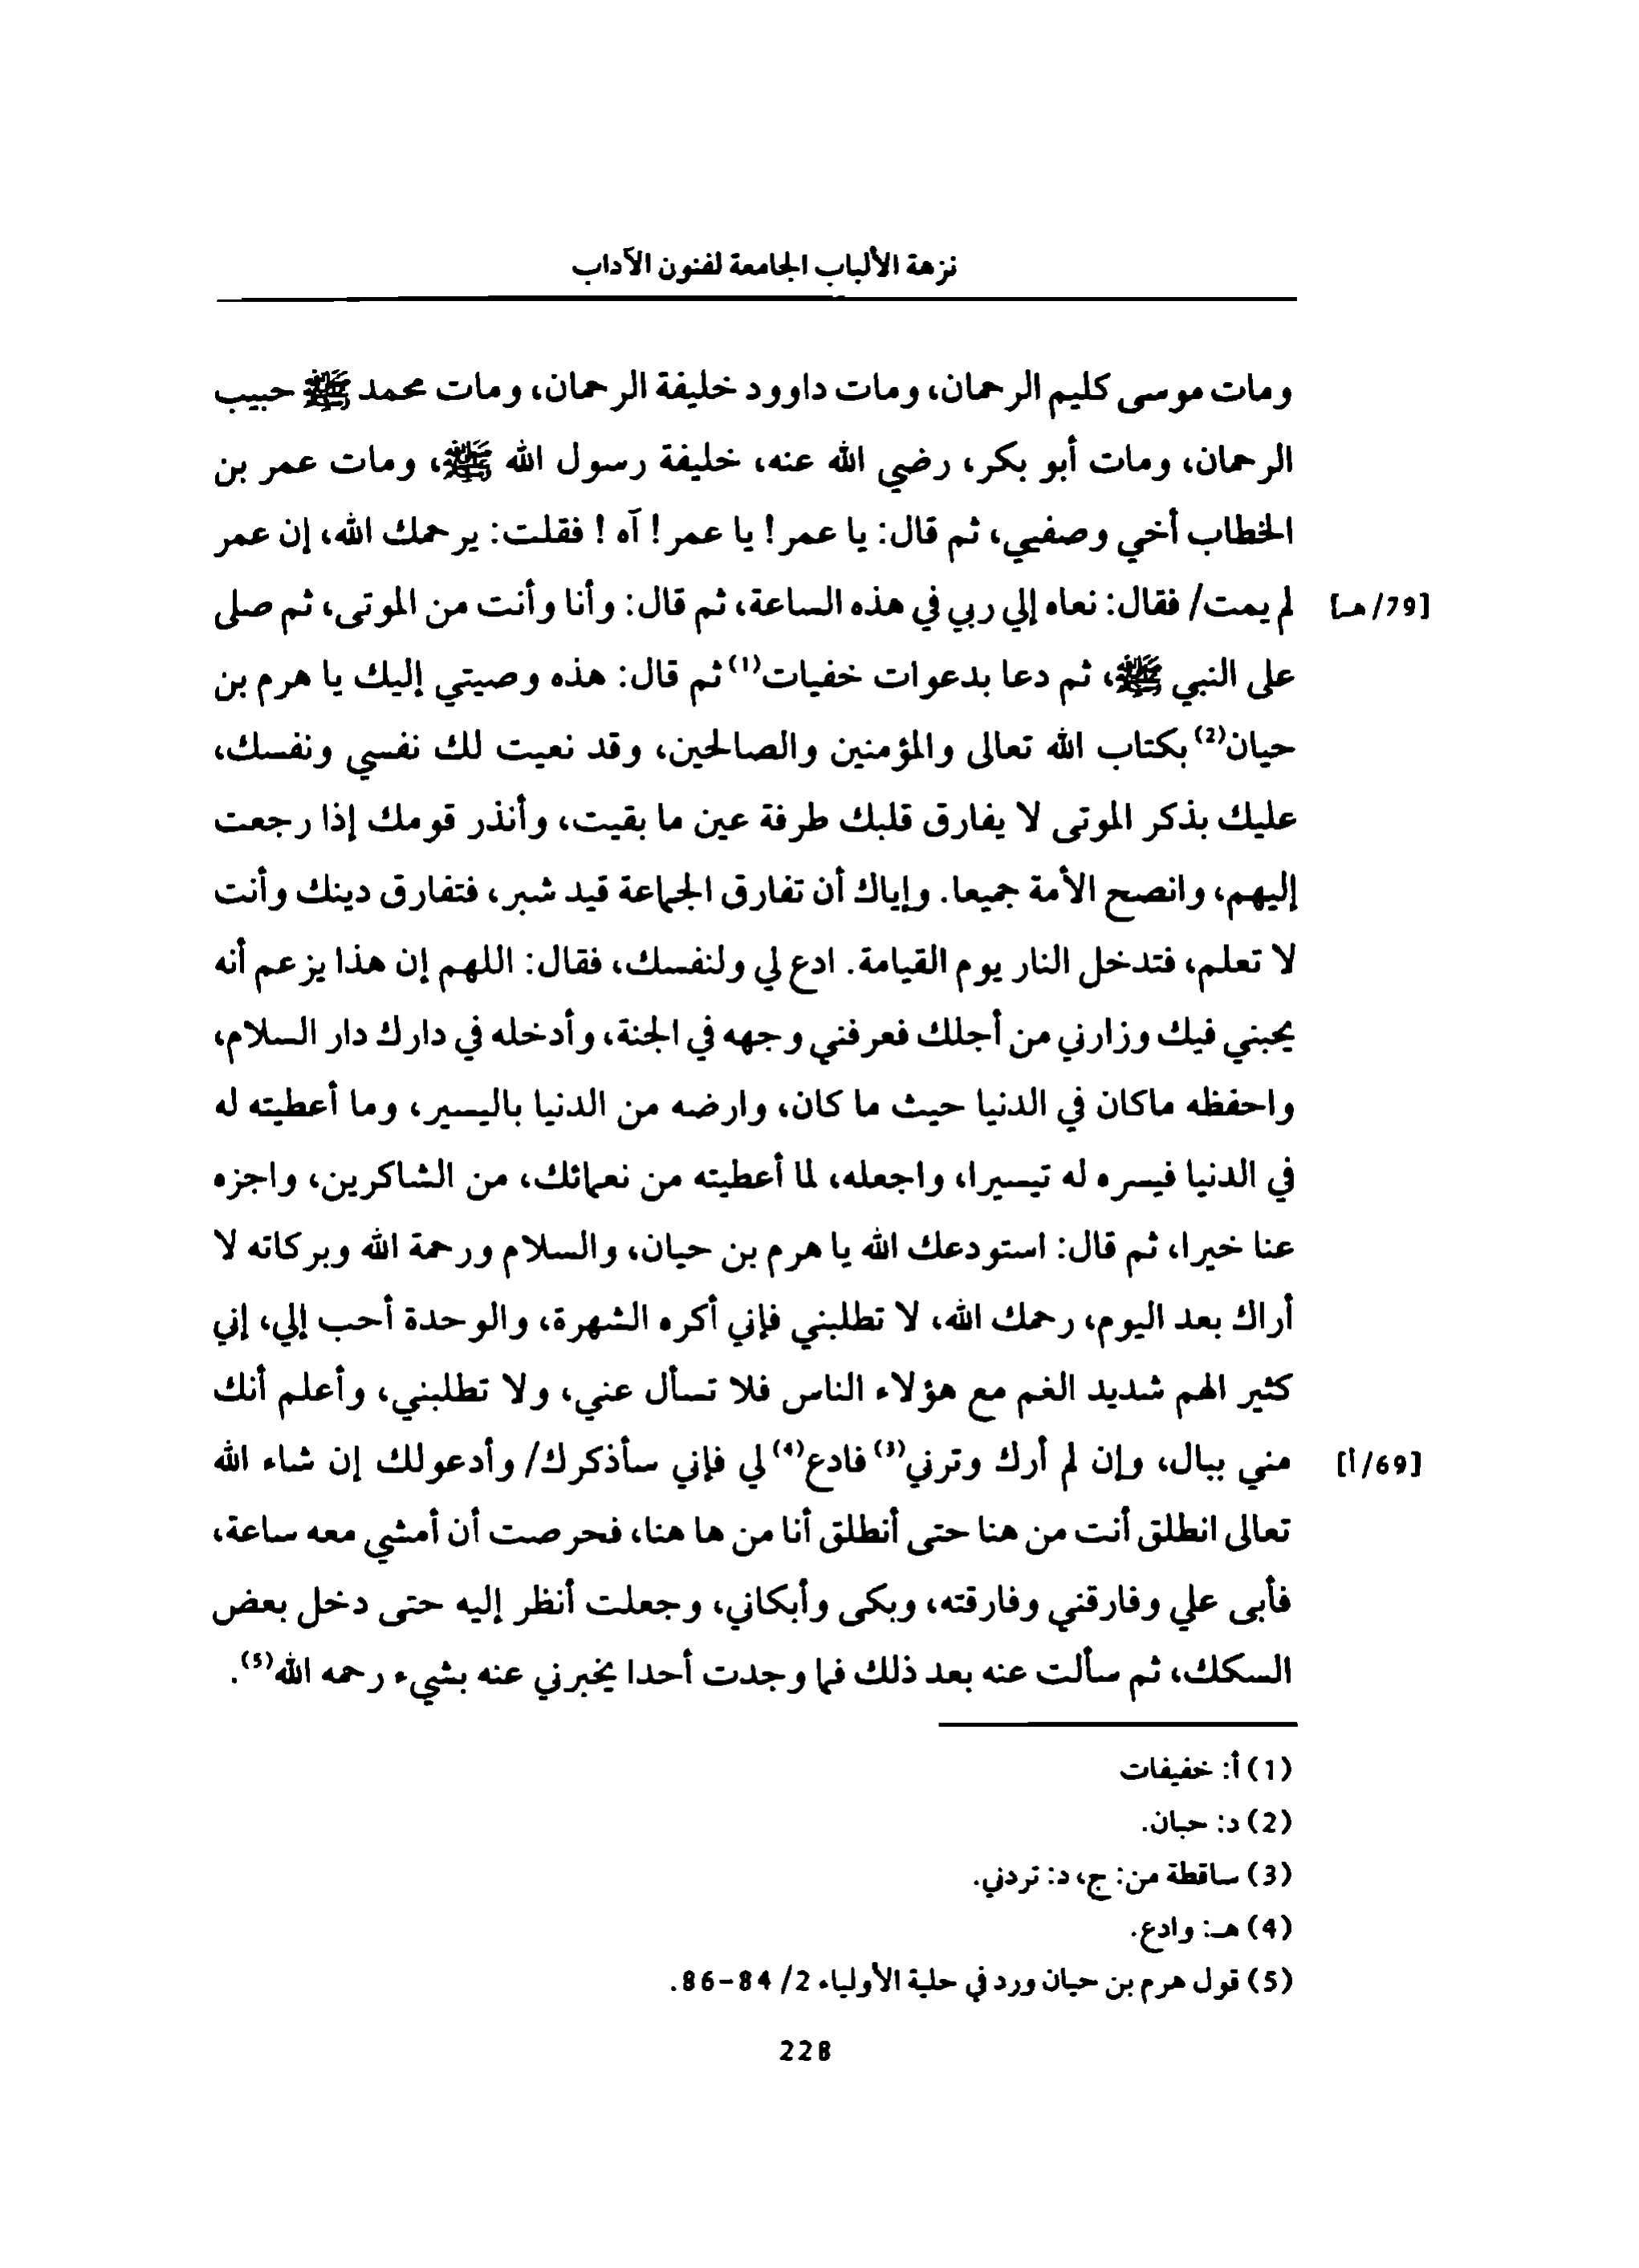 نزهة الألباب الجامعة لفنون الآداب
ومات موسى كليم الرحمان، ومات داوود خليفة الرحمان، ومات محمد ﷺ حبيب
الرحمان، ومات أبو بكر، رضي الله عنه، خليفة رسول الله ﷺ، ومات عمر بن
الخطاب أخي وصفيي، ثم قال: يا عمر! يا عمر! آه! فقلت: يرحمك الله، إن عمر
لم يمت/ فقال: نعاه إلي ربي في هذه الساعة، ثم قال: وأنا وأنت من الموتى، ثم صلى [79/هـ]
على النبي ﷺ، ثم دعا بدعوات خفيات(1) ثم قال: هذه وصيتي إليك يا هرم بن
حيان(2) بكتاب الله تعالى والمؤمنين والصالحين، وقد نعيت لك نفسي ونفسك،
عليك بذكر الموتى لا يفارق قلبك طرفة عين ما بقيت، وأنذر قومك إذا رجعت
إليهم، وانصح الأمة جميعا. وإياك أن تفارق الجماعة قيد شبر، فتفارق دينك وأنت
لا تعلم، فتدخل النار يوم القيامة. ادع لي ولنفسك، فقال: اللهم إن هذا يزعم أنه
يحبني فيك وزارني من أجلك فعرفني وجهه في الجنة، وأدخله في دارك دار السلام،
واحفظه ماكان في الدنيا حيث ما كان، وارضه من الدنيا باليسير، وما أعطيته له
في الدنيا فيسره له تيسيرا، واجعله، لما أعطيته من نعمائك، من الشاكرين، واجزه
عنا خيرا، ثم قال: استودعك الله يا هرم بن حيان، والسلام ورحمة الله وبركاته لا
أراك بعد اليوم، رحمك الله، لا تطلبني فإني أكره الشهرة، والوحدة أحب إلي، إني
كثير الهم شديد الغم مع هؤلاء الناس فلا تسأل عني، ولا تطلبني، وأعلم أنك
مني ببال، وإن لم أرك وترني(3) فادع(4) لي فإني سأذكرك/ وأدعولك إن شاء الله [69/أ]
تعالى انطلق أنت من هنا حتى أنطلق أنا من ها هنا، فحرصت أن أمشي معه ساعة،
فأبى علي وفارقني وفارقته، وبكى وأبكاني، وجعلت أنظر إليه حتى دخل بعض
السكك، ثم سألت عنه بعد ذلك فما وجدت أحدا يخبرني عنه بشيء رحمه الله(5).
(1) أ: خفيفات
(2) د: حبان.
(3) ساقطة من: ج، د: تردني.
(4) هـ: وادع.
(5) قول هرم بن حيان ورد في حلية الأولياء 2/ 84-86.
228